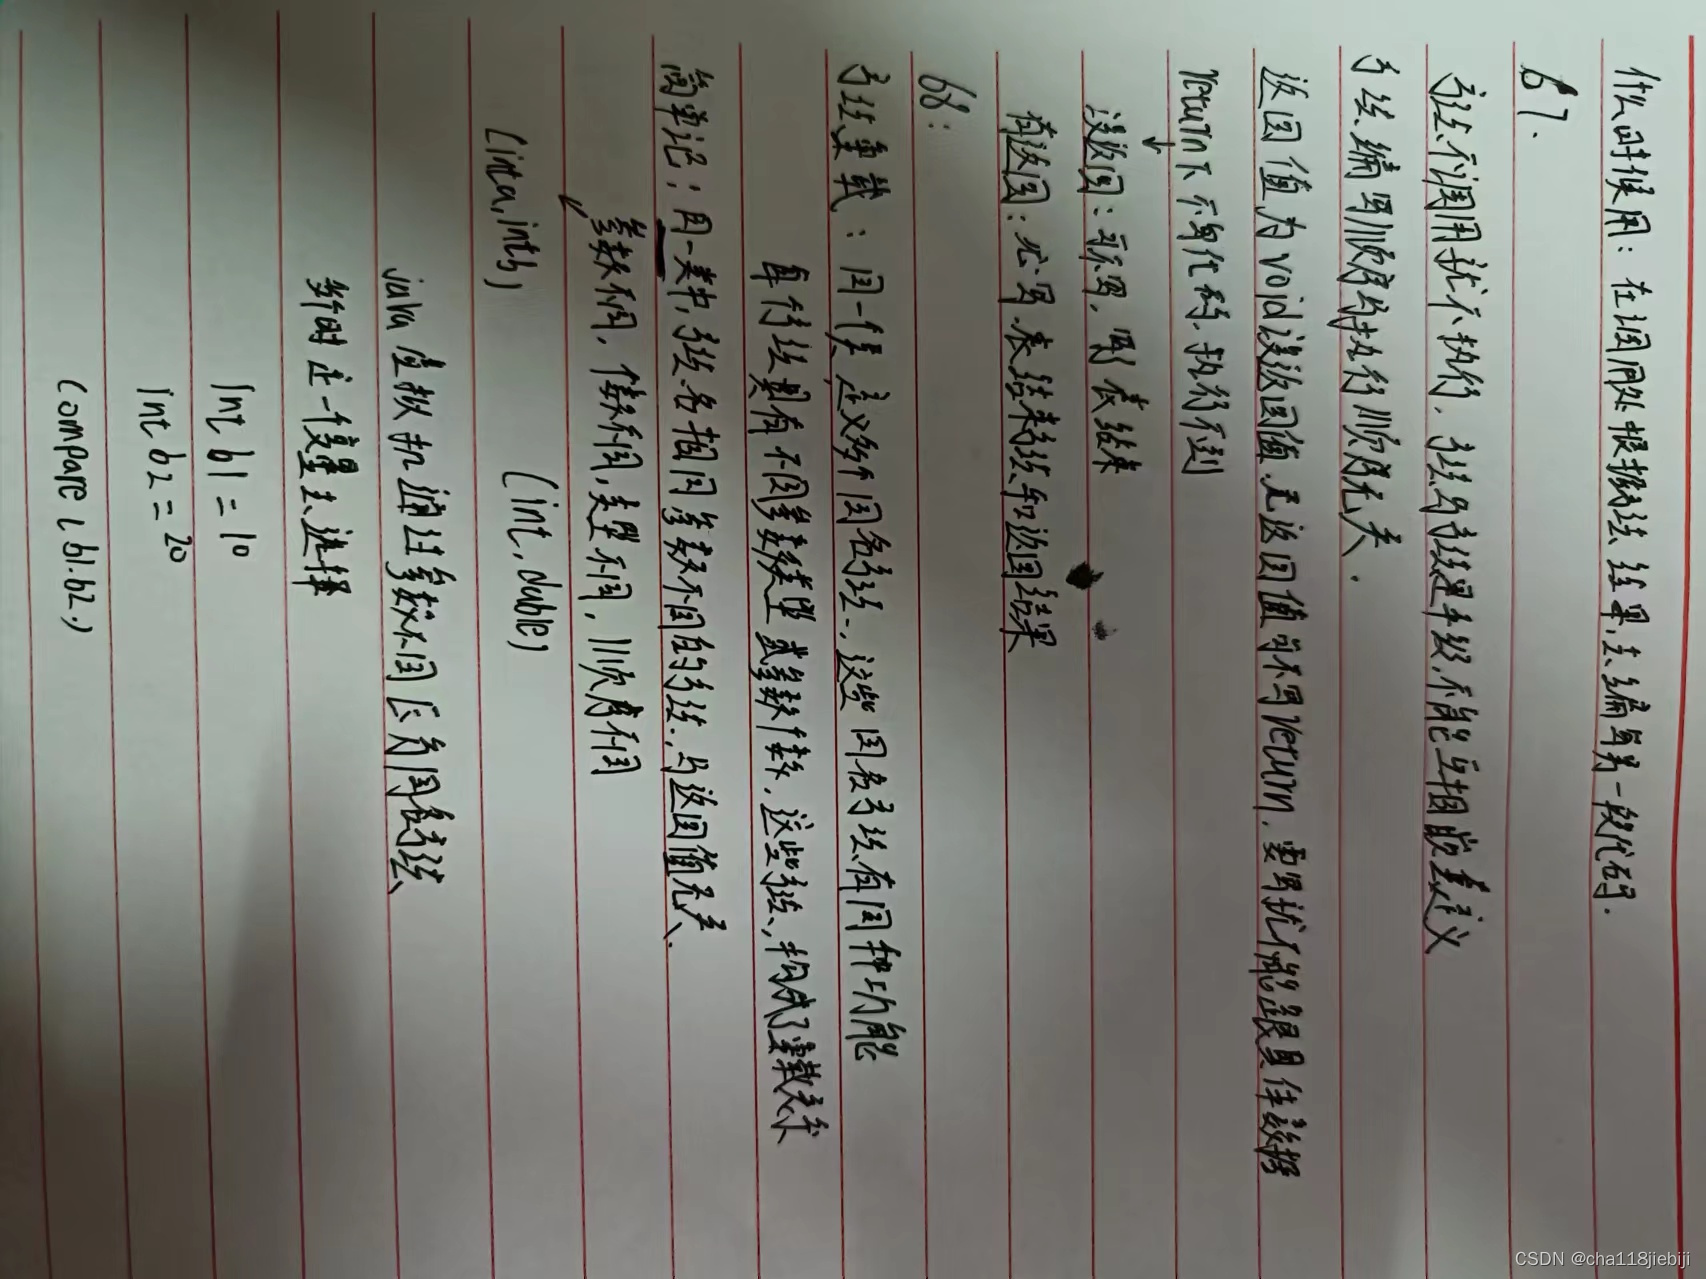 什么时候使用：在调用处根据方法结果，去编写另一段代码.
67.
方法不调用就不执行，方法与方法是平级，不能互相嵌套定义
方法编写顺序与执行顺序无关.
返回值为void没返回值，无返回值可不写return，要写就不能跟具体数据
return下不写代码，执行不到
没返回：可不写，写了表结束
有返回：必写，表结束方法和返回结果
68：
方法重载：同一个类，定义多个同名方法，这些同名方法有同种功能
每个方法具有不同参数类型或参数个数，这些方法，构成了重载关系
简单记：同一类中，方法名相同参数不同的方法，与返回值无关、
参数不同，个数不同，类型不同，顺序不同
(inta,intb) (int, duble)
java虚拟机通过参数不同区分同名方法
新时定一个变量去选择
Int b1 = 10
Int b2 = 20
Compare (b1.b2.)
CSDN @cha118jiebiji